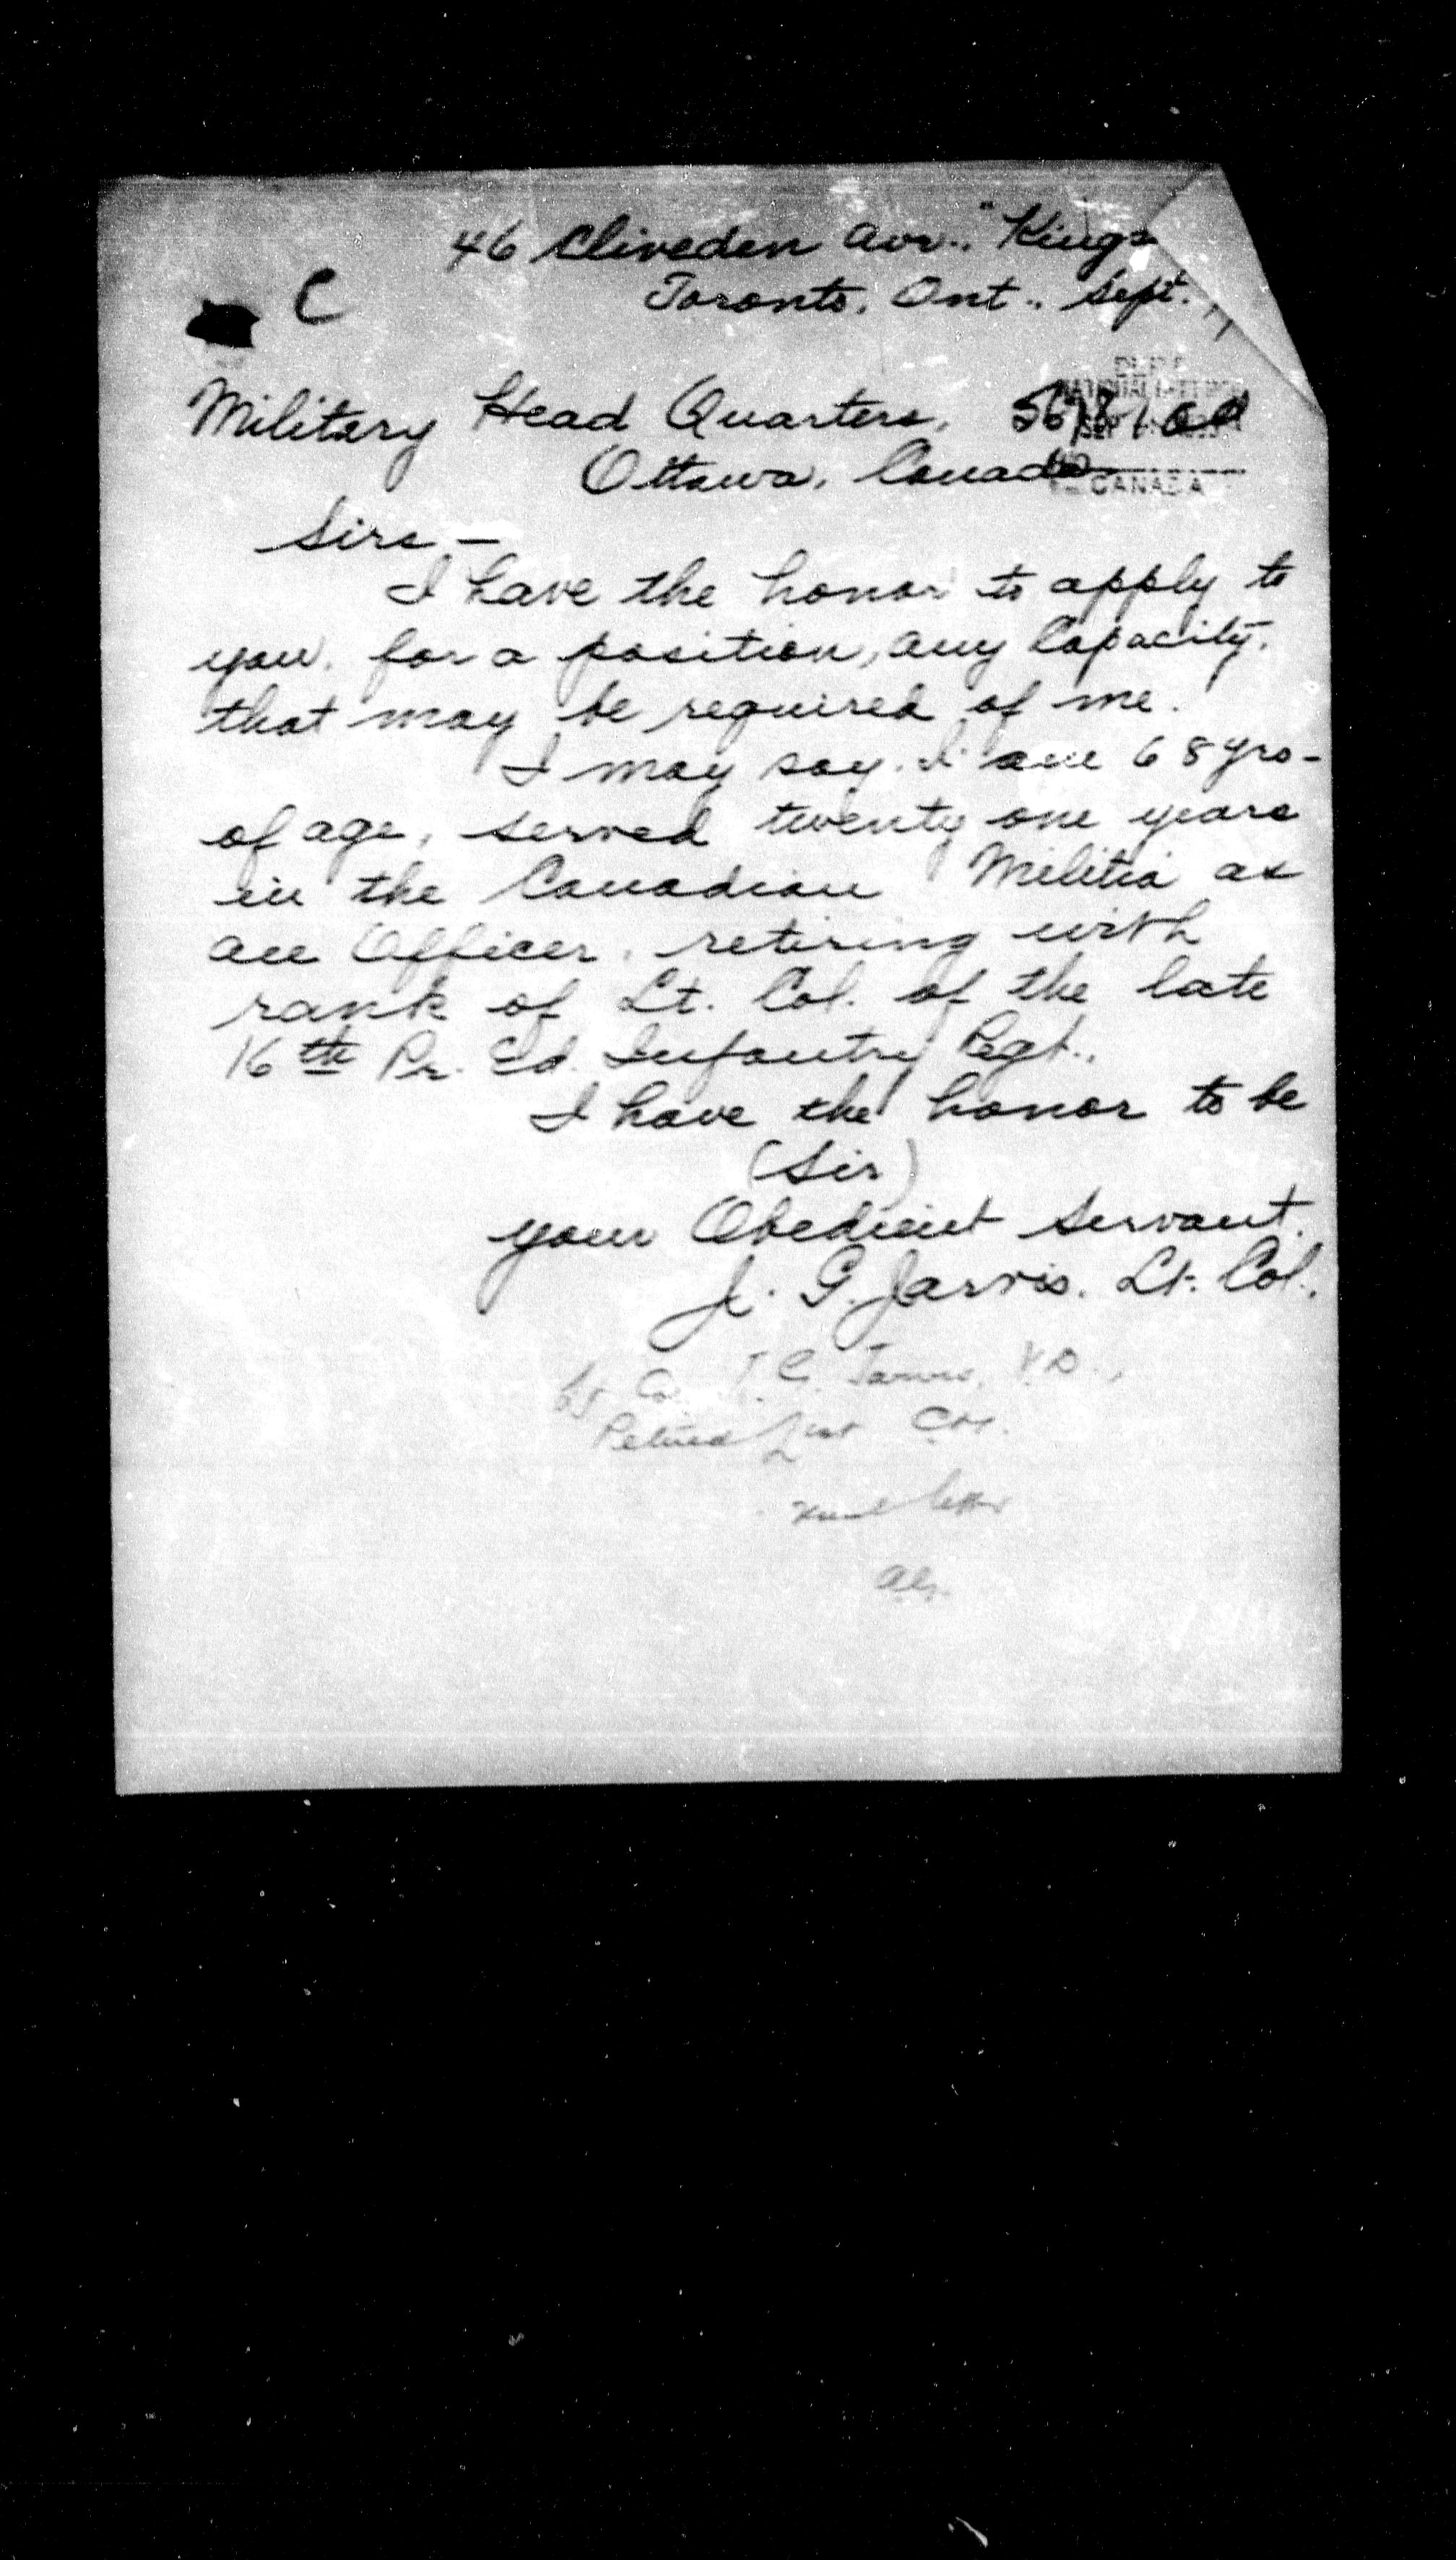 46 Cliveden Ave., "Kings
C
Toronto, Ont., Sept.
Military Head Quarters,
Ottawa, Canada
CANADA
Sirs –
I have the honor to apply to
you, for a position, any Capacity,
that may be required of me.
I may say. I am 68 yrs-
of age, served twenty one years
in the Canadian Militia as
an Officer, retiring with
rank of Lt. Col. of the late
16th Pr. Ed. Infantry Regt.,
I have the honor to be
(Sir)
your Obedient Servant,
J. G. Jarvis. Lt. Col.
Lt Col. J. G. Jarvis, V.D.,
Retired List
letter